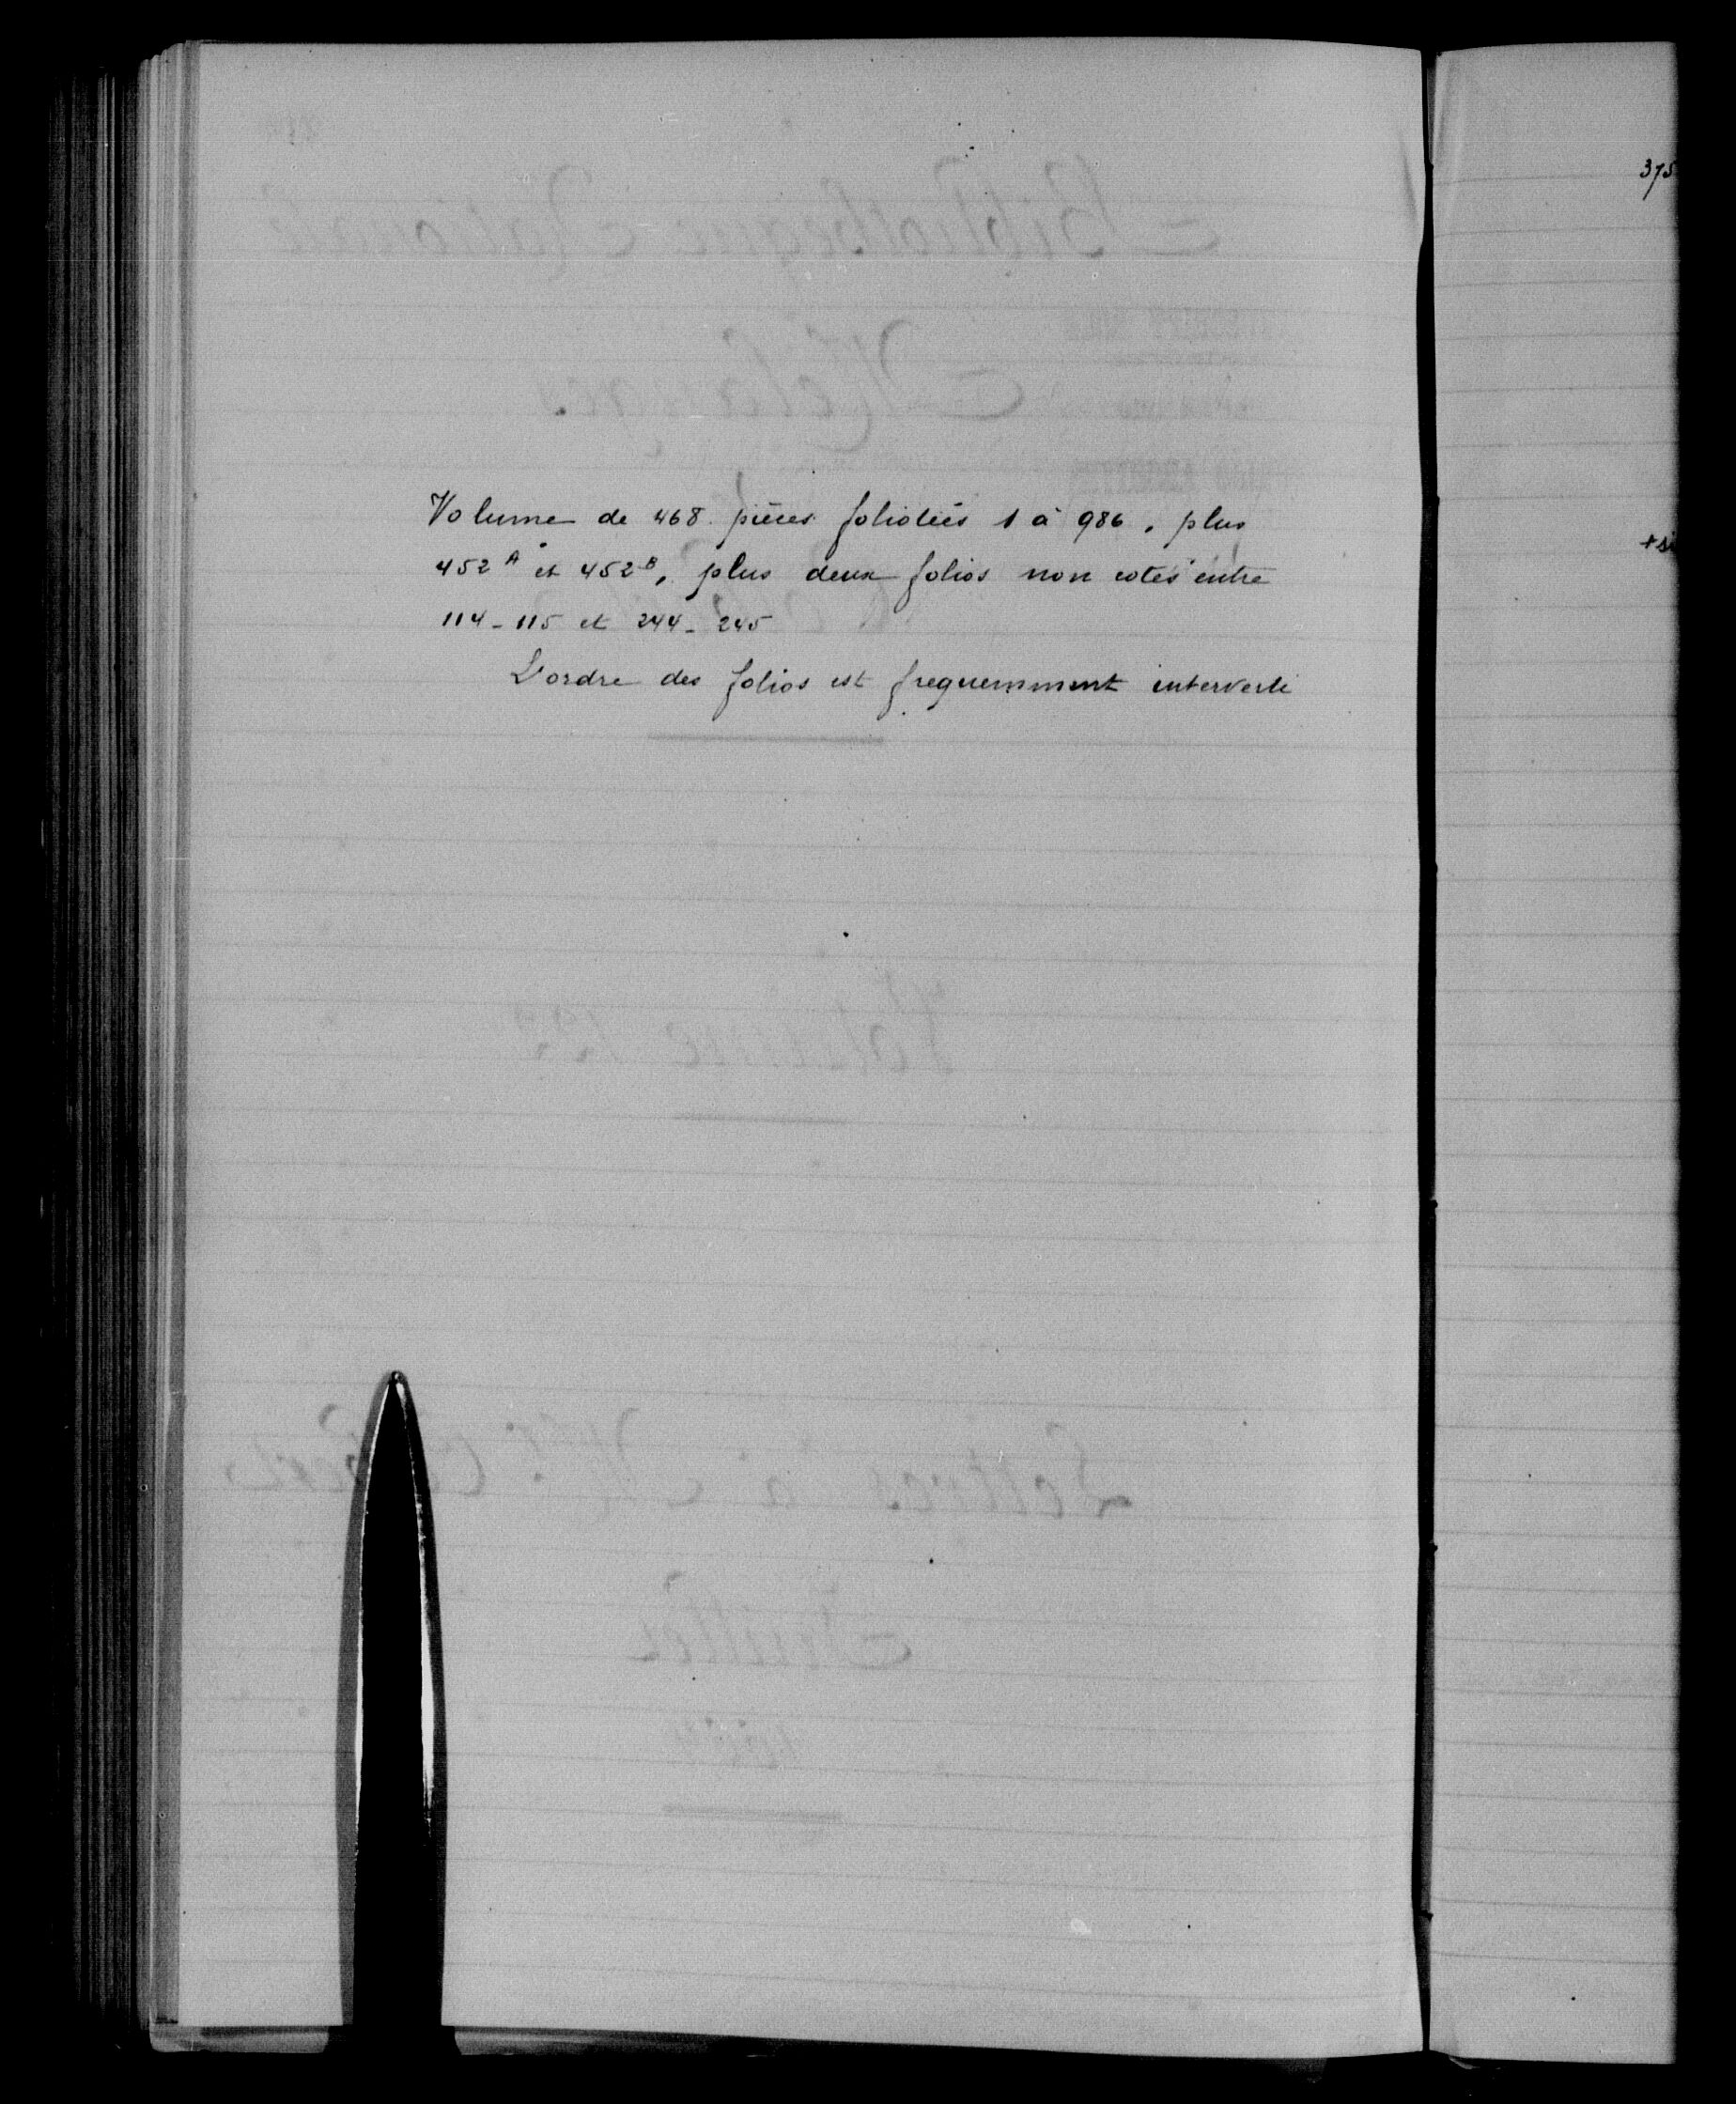 Volume de 468 pièces foliotées 1 à 986, plus
452 A et 452 B, plus deux folios non cotés entre
114 - 115 et 244 - 245
L'ordre des folios est frequemment interverti
375